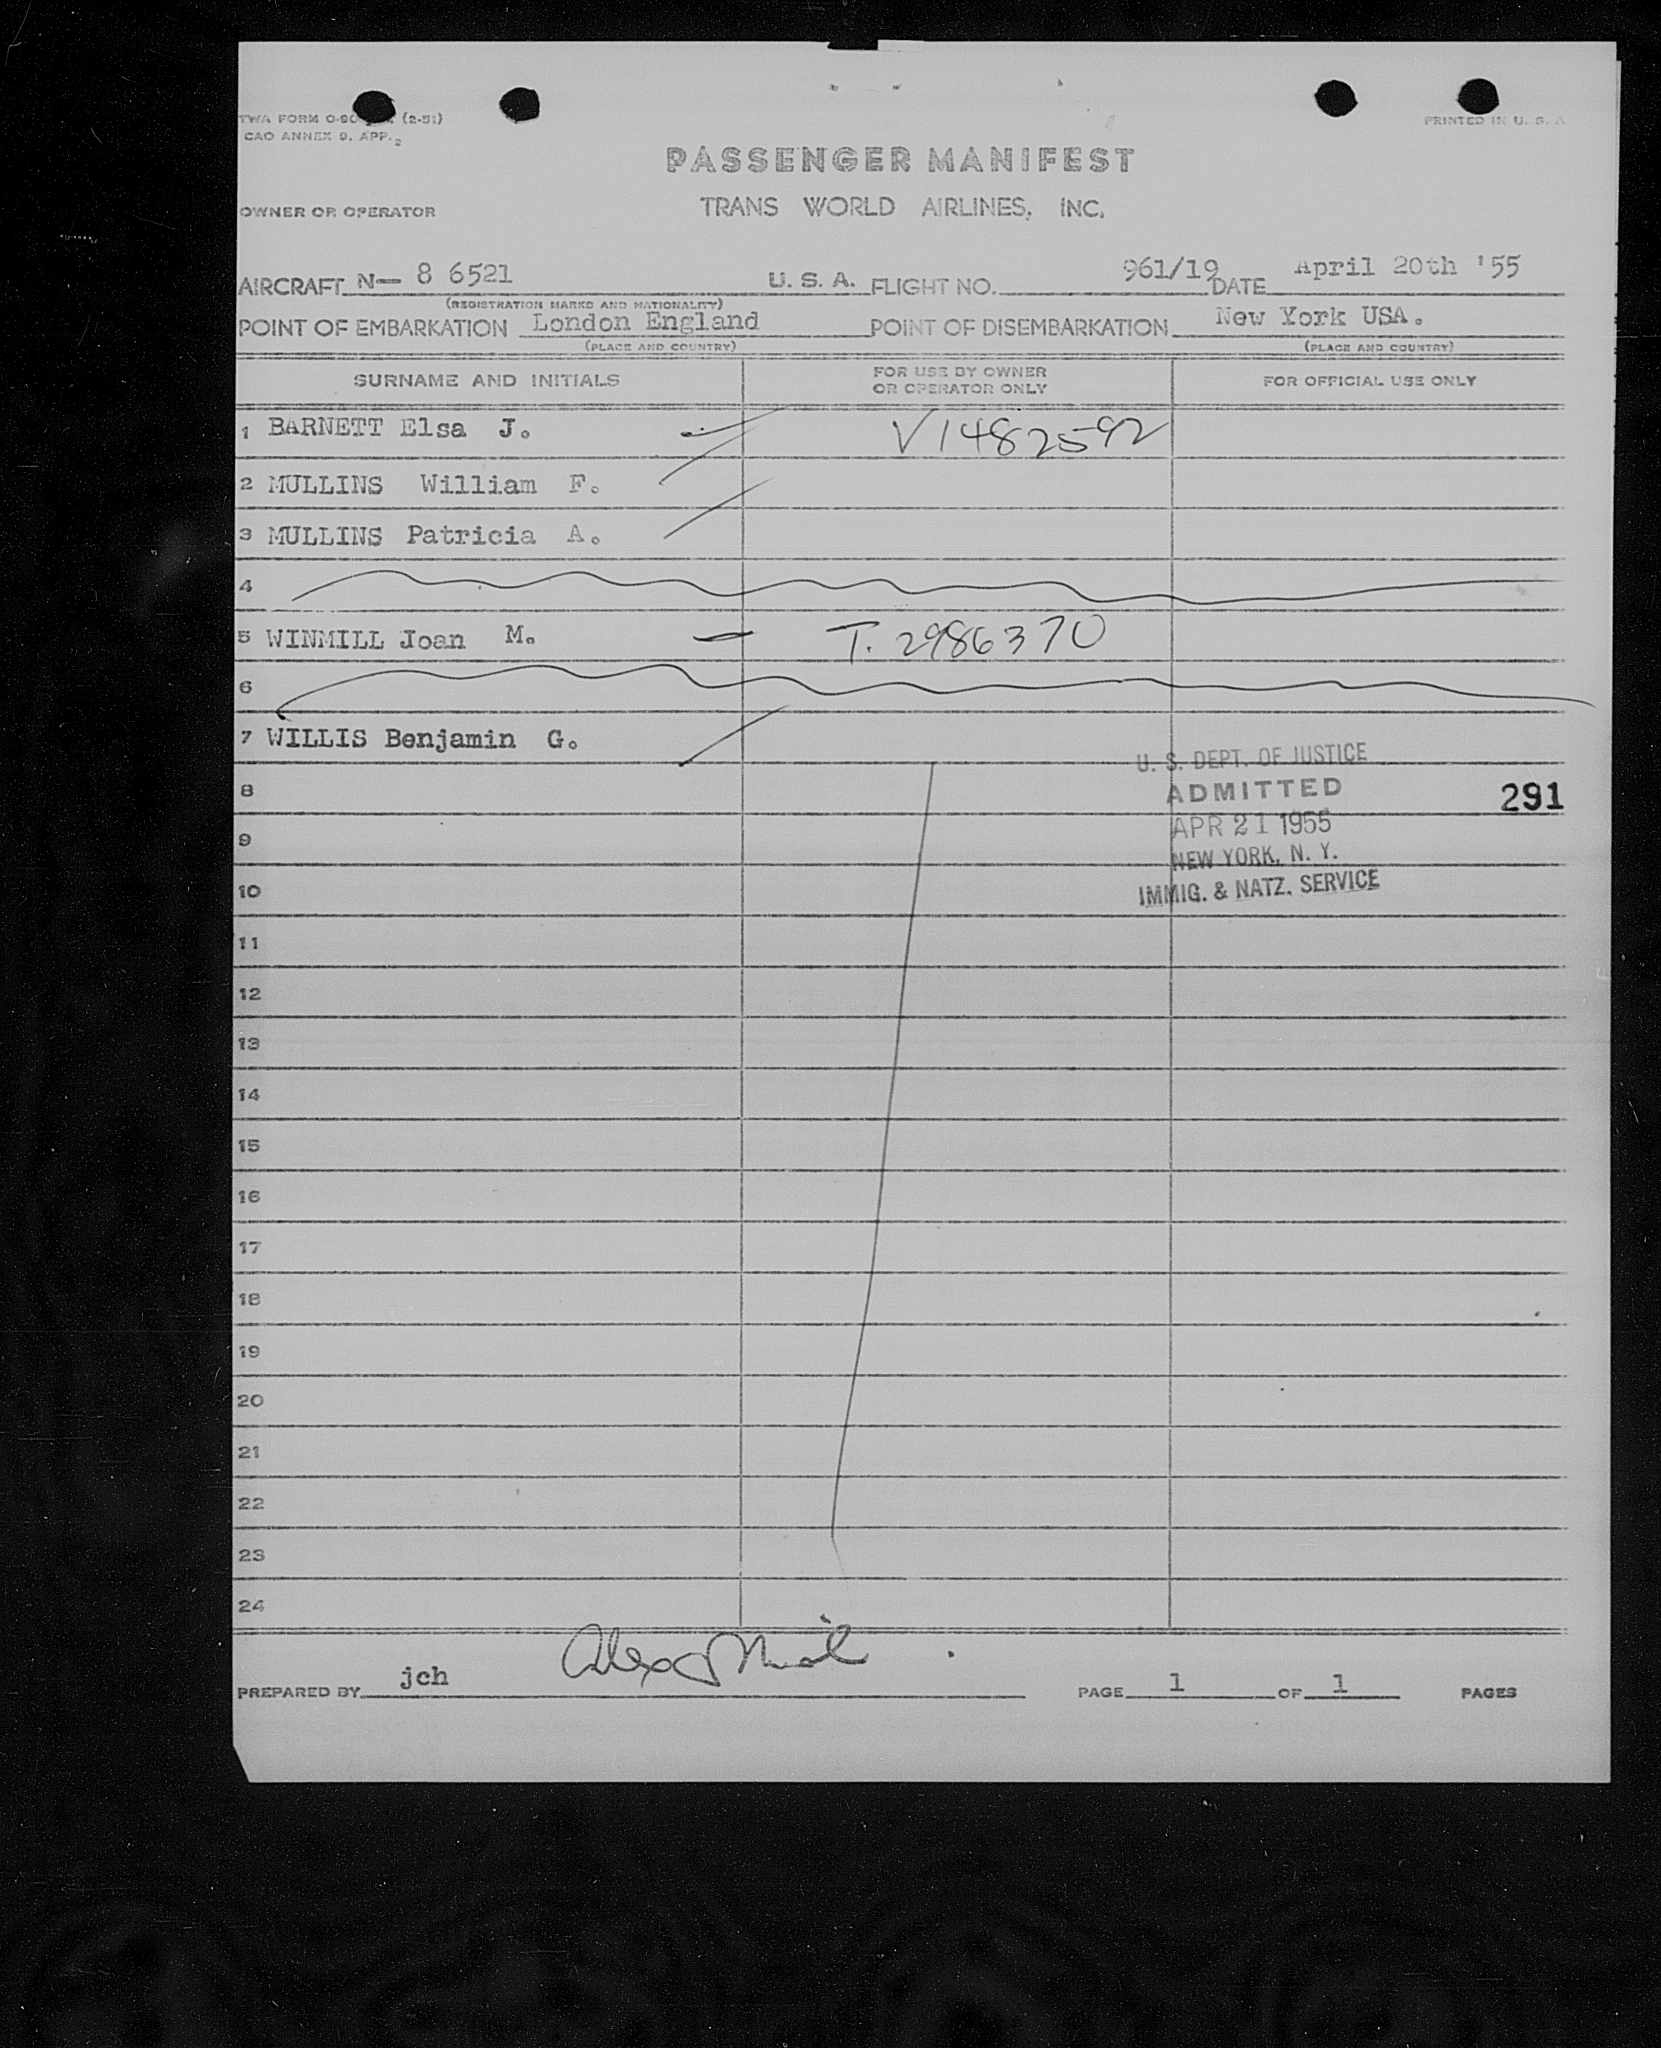 TWA FORM O-90 (2-51)
CAO ANNEX 9, APP. 2
PRINTED IN U. S. A
PASSENGER MANIFEST
OWNER OR OPERATOR TRANS WORLD AIRLINES, INC.
AIRCRAFT N— 8 6521 U. S. A. FLIGHT NO. 961/19 DATE April 20th '55
(REGISTRATION MARKS AND NATIONALITY)
POINT OF EMBARKATION London England POINT OF DISEMBARKATION New York USA.
(PLACE AND COUNTRY) (PLACE AND COUNTRY)
SURNAME AND INITIALS FOR USE BY OWNER OR OPERATOR ONLY FOR OFFICIAL USE ONLY
1 BARNETT Elsa J. V1482592
2 MULLINS William F.
3 MULLINS Patricia A.
4
5 WINMILL Joan M. T. 2986370
6
7 WILLIS Benjamin G.
U. S. DEPT. OF JUSTICE
8 ADMITTED 291
APR 21 1955
9
NEW YORK, N. Y.
10 IMMIG. & NATZ. SERVICE
11
12
13
14
15
16
17
18
19
20
21
22
23
24
PREPARED BY jch PAGE 1 OF 1 PAGES